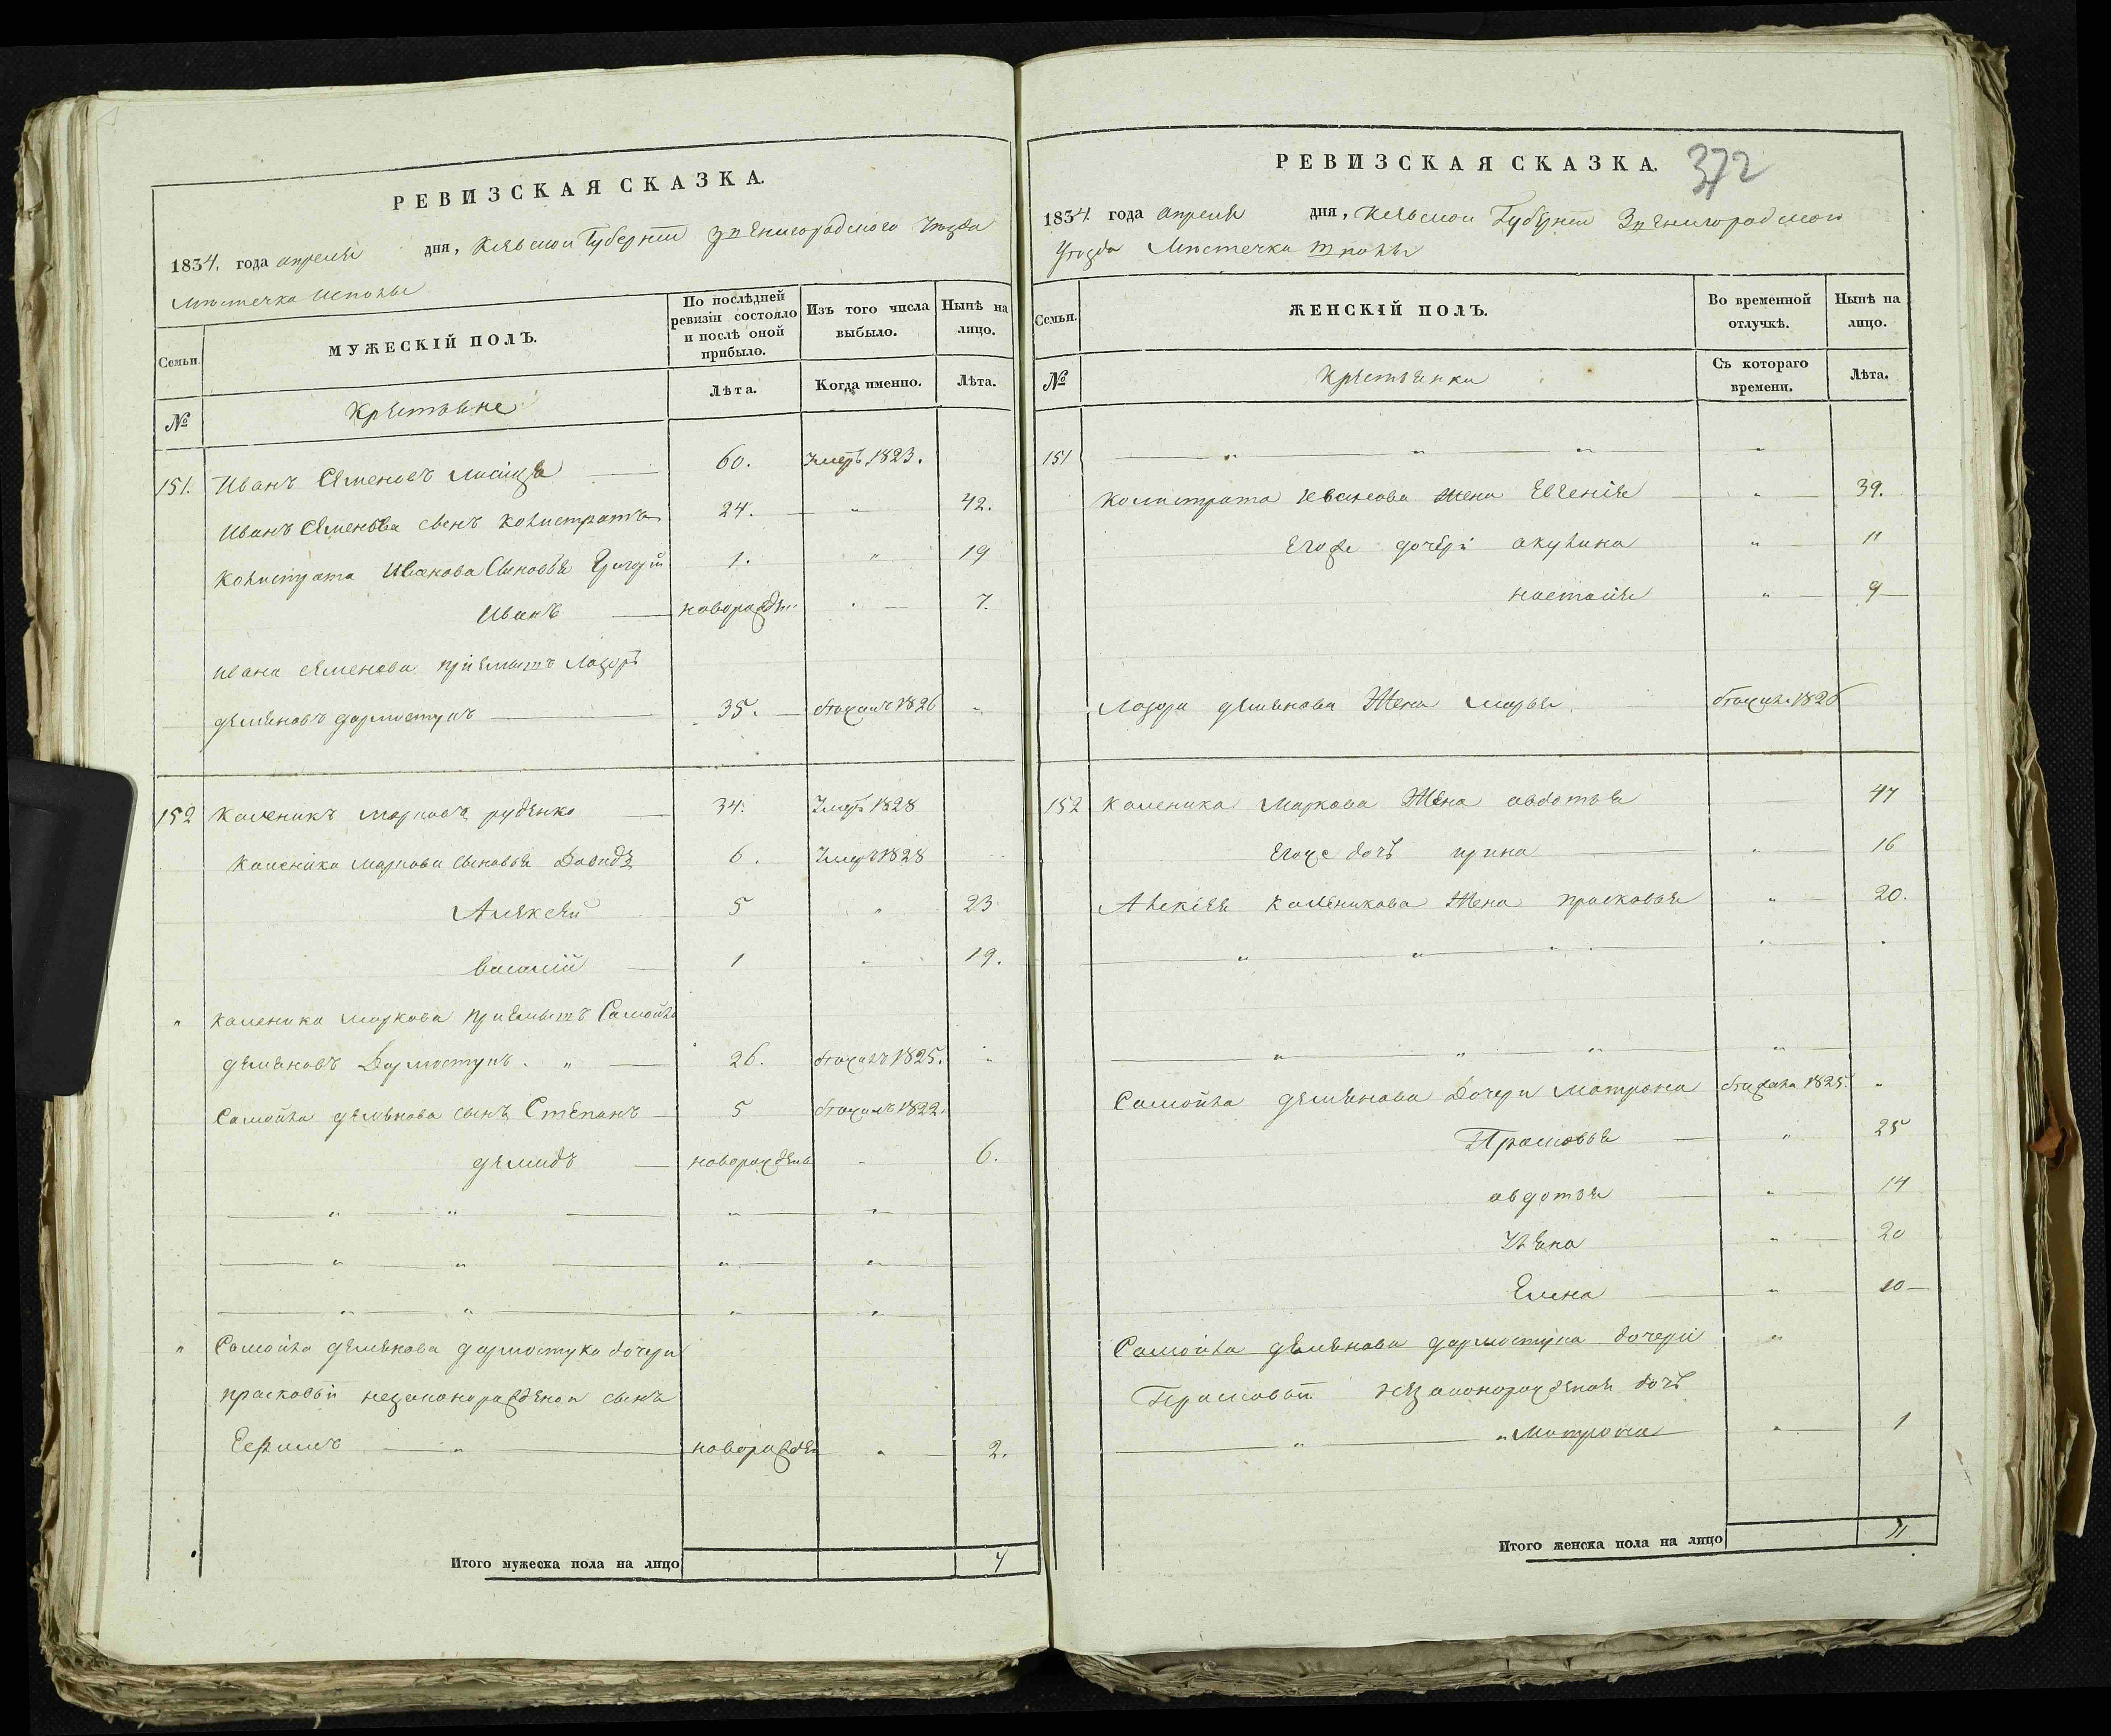 РЕВИЗСКАЯ СКАЗКА.
1834. года апреля дня, Кіевской Губерніи Звенигородского Уезда
Местечка Шполы
Семьи.
МУЖЕСКІЙ ПОЛЪ.
По послѣдней ревизіи состояло и послѣ оной прибыло.
Изъ того числа выбыло.
Нынѣ на лицо.
№
Крестьяне
Лѣта.
Когда именно.
Лѣта.
151. Иванъ Семеновъ Лисица 60. Умеръ 1823.
Иванъ Семенова сынъ Колистратъ 24. " 42.
Колистрата Иванова Сыновья Григорій 1. " 19
Иванъ новорожден 7.
Ивана Семенова пріемышъ Лазоръ
демяновъ дармостукъ 35. 1826 "
152 Каленикъ Марковъ руденко 34. Умеръ 1828
Каленика Маркова сыновья Давидъ 6. Умеръ 1828
Алексей 5 " 23
Василій 1 " 19.
" Каленика Маркова пріемышъ Самойла
демяновъ Дармостукъ. " 26. 1825. "
Самойла демянова сынъ Степанъ 5 1822.
демидъ новорожденъ 6.
" " " "
" " " "
" " " "
" Самойла демянова дармостука дочери
прасковьи незаконорожденой сынъ
Ефимъ " новорожден " 2.
Итого мужеска пола на лицо 7
РЕВИЗСКАЯ СКАЗКА.
372
1834. года апреля дня, Кіевской Губерніи Звенигородского
Уезда Местечка Шполы
Семьи.
ЖЕНСКІЙ ПОЛЪ.
Во временной отлучкѣ.
Нынѣ на лицо.
№
Крестьянки
Съ котораго времени.
Лѣта.
151 " " " "
Колистрата Иванова Жена Евгенія " 39.
Егоже дочери акулина " 11
настасія " 9
Лазора демянова Жена Марья 1826
152 Каленика Маркова Жена авдотья 47
Егоже дочь ирина " 16
Алексея Каленикова Жена прасковья " 20.
" " " " "
" " " "
Самойла демянова Дочери Матрона 1825. "
Прасковья " 25
авдотья " 14
Уляна " 20
Елена " 10
Самойла демянова дармостука дочери "
Прасковьи незаконорожденая дочь
" " Матрона " 1
Итого женска пола на лицо 11